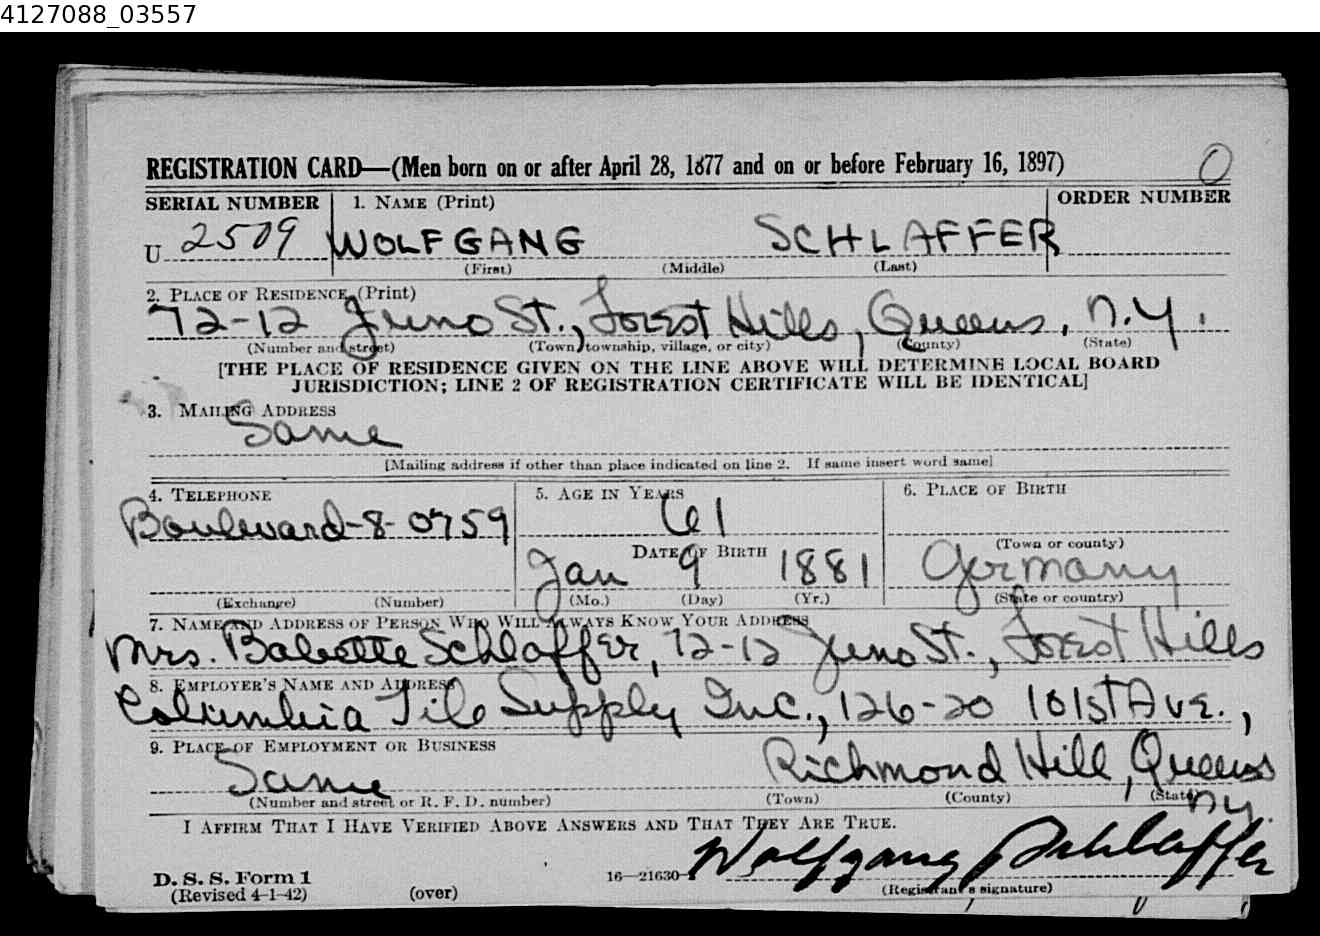 4127088_03557
REGISTRATION CARD—(Men born on or after April 28, 1877 and on or before February 16, 1897) 0
SERIAL NUMBER 1. NAME (Print) ORDER NUMBER
U 2509 WOLFGANG SCHLAFFER
(First) (Middle) (Last)
2. PLACE OF RESIDENCE (Print)
72-12 Juno St., Forest Hills, Queens, N.Y.
(Number and street) (Town, township, village, or city) (County) (State)
[THE PLACE OF RESIDENCE GIVEN ON THE LINE ABOVE WILL DETERMINE LOCAL BOARD
JURISDICTION; LINE 2 OF REGISTRATION CERTIFICATE WILL BE IDENTICAL]
3. MAILING ADDRESS
Same
[Mailing address if other than place indicated on line 2. If same insert word same]
4. TELEPHONE 5. AGE IN YEARS 6. PLACE OF BIRTH
Boulevard-8-0759 61
DATE OF BIRTH (Town or county)
Jan 9 1881 Germany
(Exchange) (Number) (Mo.) (Day) (Yr.) (State or country)
7. NAME AND ADDRESS OF PERSON WHO WILL ALWAYS KNOW YOUR ADDRESS
Mrs. Babette Schlaffer, 72-12 Juno St., Forest Hills
8. EMPLOYER'S NAME AND ADDRESS
Columbia Tile Supply Inc., 126-20 101st Ave.,
9. PLACE OF EMPLOYMENT OR BUSINESS
Same Richmond Hill, Queens
(Number and street or R. F. D. number) (Town) (County) (State)
N.Y.
I AFFIRM THAT I HAVE VERIFIED ABOVE ANSWERS AND THAT THEY ARE TRUE.
Wolfgang Schlaffer
D. S. S. Form 1 16—21630-1
(Revised 4-1-42) (over) (Registrant's signature)